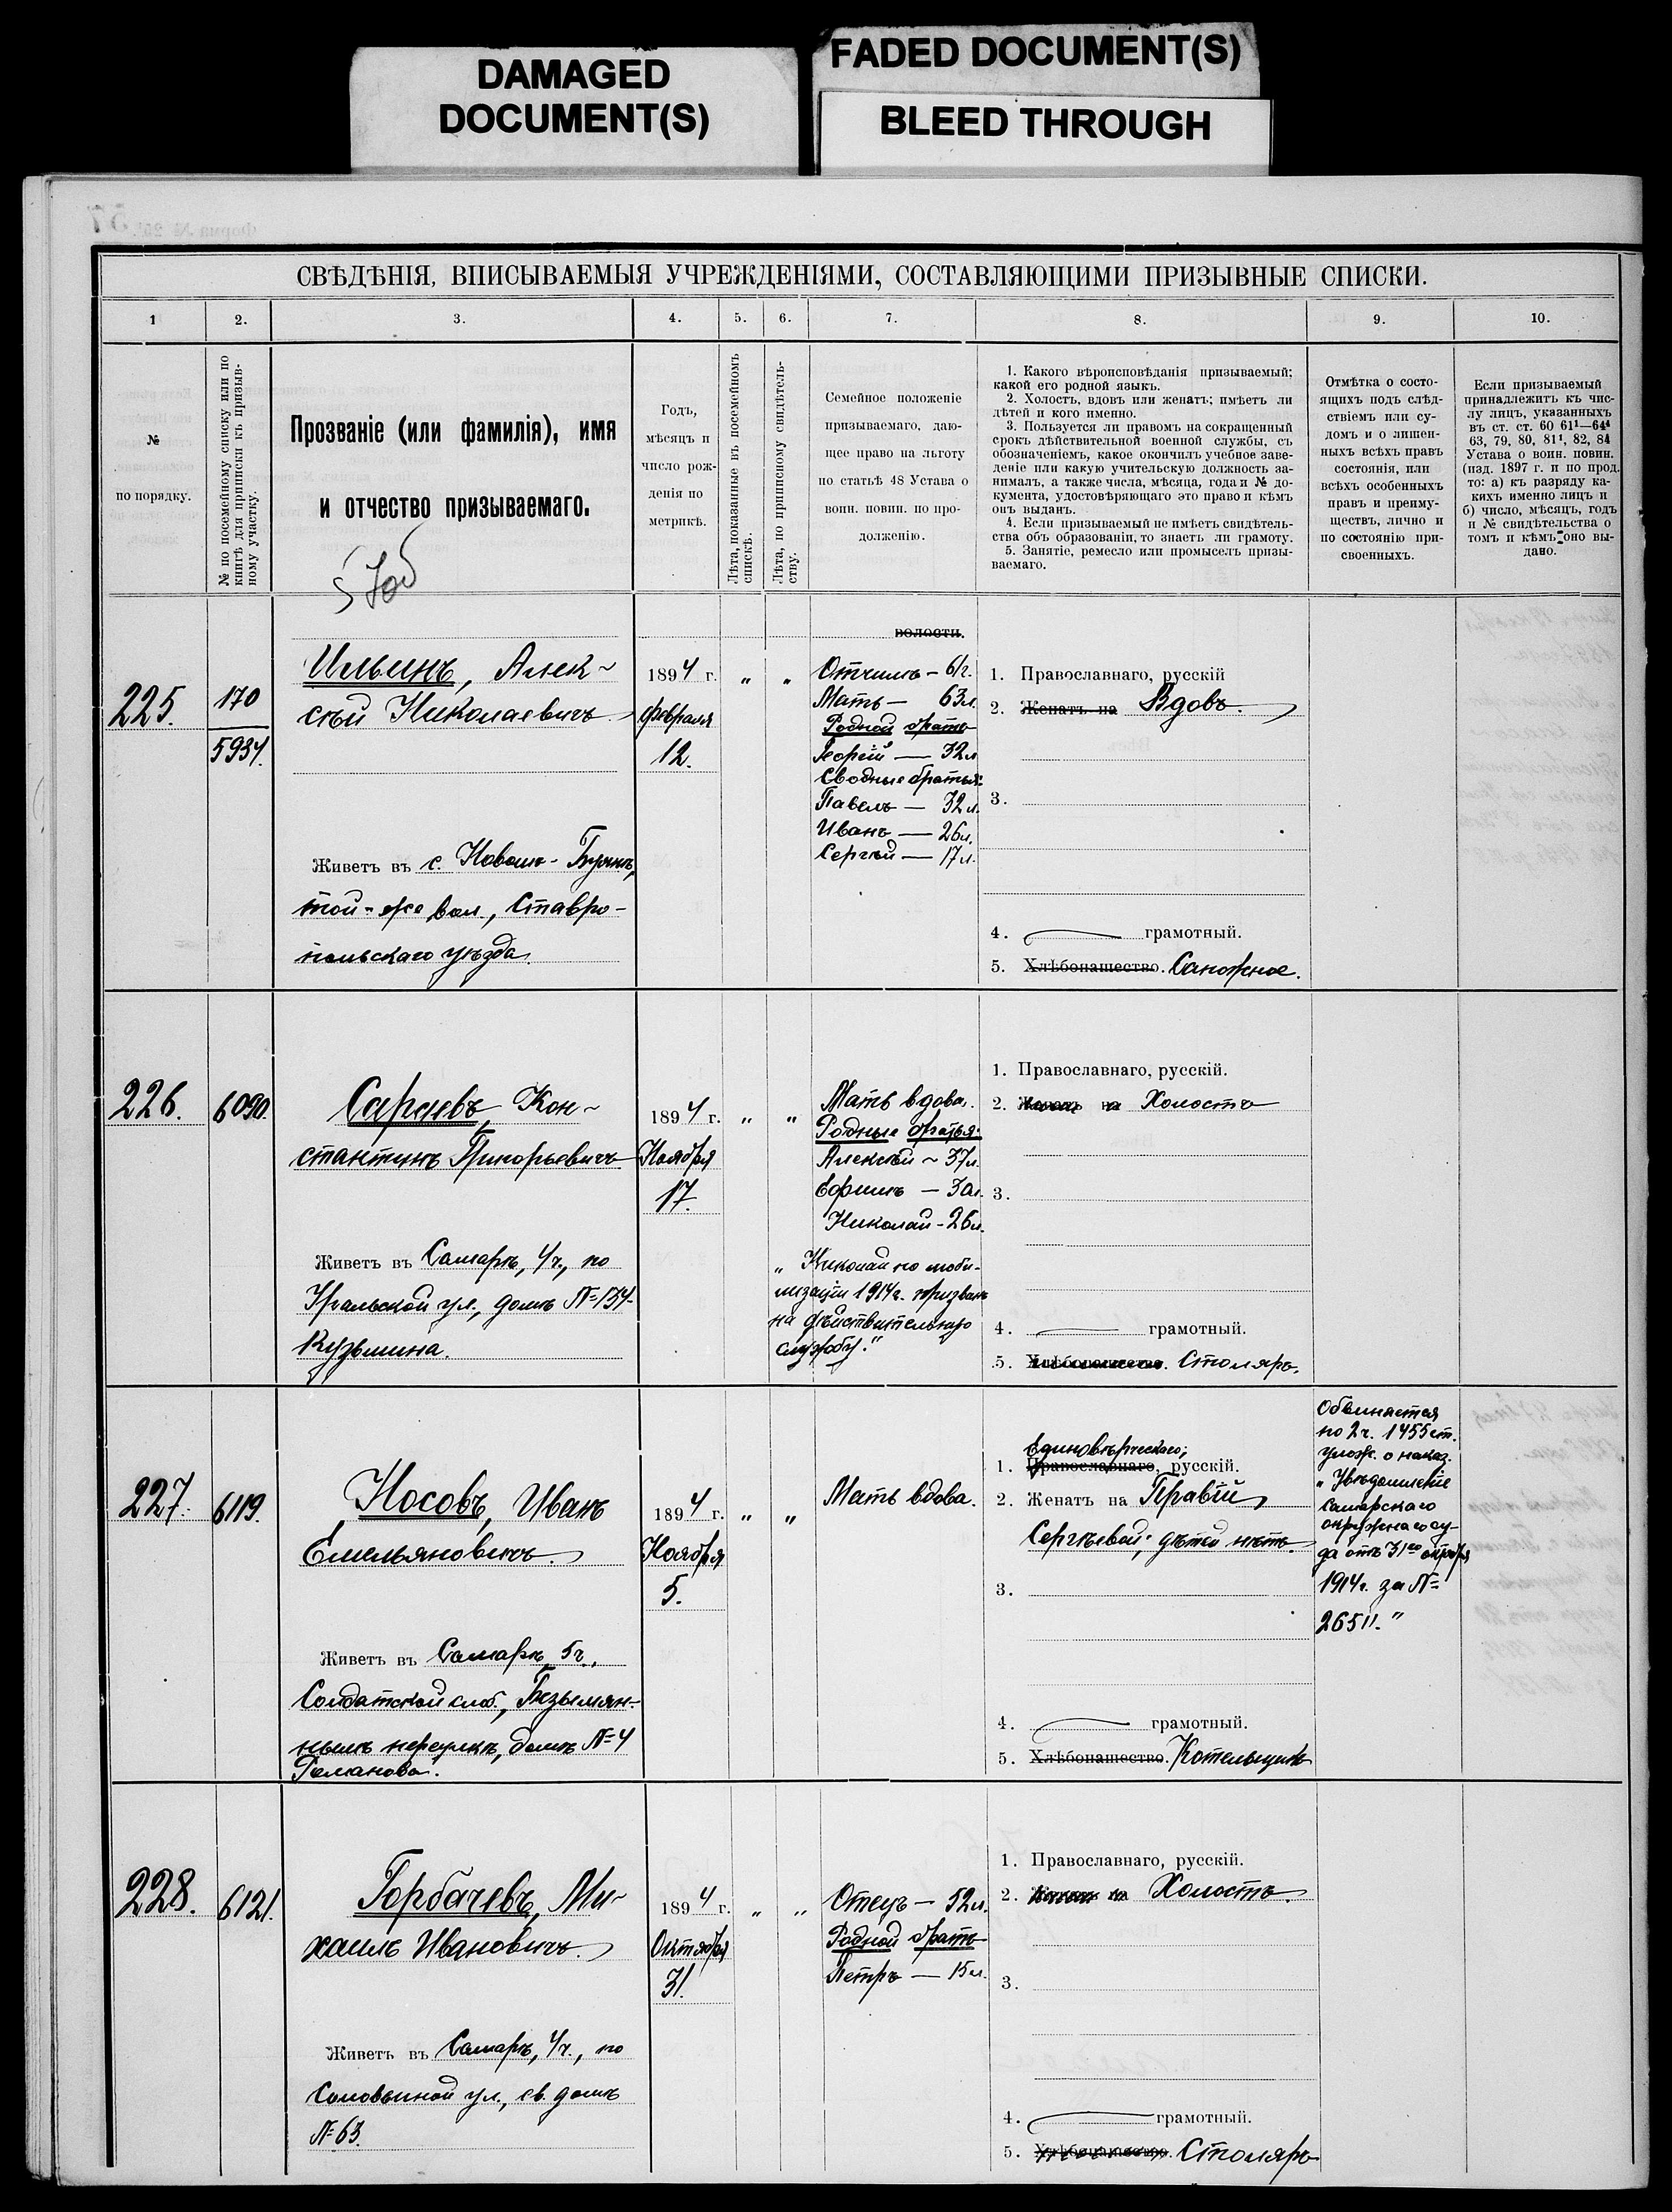 DAMAGED
DOCUMENT(S)
FADED DOCUMENT(S)
BLEED THROUGH
СВѢДѢНІЯ, ВПИСЫВАЕМЫЯ УЧРЕЖДЕНІЯМИ, СОСТАВЛЯЮЩИМИ ПРИЗЫВНЫЕ СПИСКИ.
1 2. 3. 4. 5. 6. 7. 8. 9. 10.
№
по порядку.
№ по посемейному списку или по
книгѣ для приписки къ призыв-
ному участку.
Прозваніе (или фамилія), имя
и отчество призываемаго.
Годъ,
мѣсяцъ и
число рож-
денія по
метрикѣ.
Лѣта, показанные въ посемейномъ
спискѣ.
Лѣта, по приписному свидѣтель-
ству.
Семейное положеніе
призываемаго, даю-
щее право на льготу
по статьѣ 48 Устава о
воин. повин. по про-
долженію.
1. Какого вѣроисповѣданія призываемый;
какой его родной языкъ.
2. Холостъ, вдовъ или женатъ; имѣетъ ли
дѣтей и кого именно.
3. Пользуется ли правомъ на сокращенный
срокъ дѣйствительной военной службы, съ
обозначеніемъ, какое окончилъ учебное заве-
деніе или какую учительскую должность за-
нималъ, а также числа, мѣсяца, года и № до-
кумента, удостовѣряющаго это право и кѣмъ
онъ выданъ.
4. Если призываемый не имѣетъ свидѣтель-
ства объ образованіи, то знаетъ ли грамоту.
5. Занятіе, ремесло или промыселъ призы-
ваемаго.
Отмѣтка о состо-
ящихъ подъ слѣд-
ствіемъ или су-
домъ и о лишен-
ныхъ всѣхъ правъ
состоянія, или
всѣхъ особенныхъ
правъ и преиму-
ществъ, лично и
по состоянію при-
своенныхъ.
Если призываемый
принадлежитъ къ чис-
лу лицъ, указанныхъ
въ ст. ст. 60 61¹—64⁴
63, 79, 80, 81¹, 82, 84
Устава о воин. повин.
(изд. 1897 г. и по прод.
то: а) къ разряду ка-
кихъ именно лицъ и
б) число, мѣсяцъ, годъ
и № свидѣтельства о
томъ и кѣмъ оно вы-
дано.
225.
170
5934.
Ильинъ, Алек-
сѣй Николаевичъ
Живетъ въ с. Новомъ-
той-же вол., Ставро-
польскаго уѣзда.
1894 г.
Февраля
12.
" "
волости.
Отчимъ – 61г.
Мать – 63л.
Родной братъ
Георгій — 32л
Сводные братья:
Павелъ — 32л.
Иванъ — 26л.
Сергѣй — 17л.
1. Православнаго, русскій
2. Женатъ на Вдовъ.
3.
4. грамотный.
5. Хлѣбопашество. Сапожное.
226.
6090.
Сараевъ, Кон-
стантинъ Григорьевичъ
Живетъ въ Самарѣ, 4ч., по
Уральской ул., домъ №134
Кузьмина.
1894 г.
Ноября
17.
" "
Мать вдова.
Родные братья:
Алексѣй – 37л.
Ефимъ — 30л.
Николай – 26л.
"Николай по моби-
лизаціи 1914г. призванъ
на дѣйствительную
службу."
1. Православнаго, русскій.
2. Женатъ на Холостъ
3.
4. грамотный.
5. Хлѣбопашество. Столяръ.
227.
6119.
Носовъ, Иванъ
Емельяновичъ.
Живетъ въ Самарѣ, 5ч.,
Солдатской слоб., Безымян-
нымъ переулкѣ, домъ №4
Романова.
1894 г.
Ноября
5.
" "
Мать вдова.
Единовѣрческаго,
1. Православнаго, русскій.
2. Женатъ на
Сергѣевой; дѣтей нѣтъ.
3.
4. грамотный.
5. Хлѣбопашество. Котельщикъ
Обвиняется
по 2ч. 1455 ст.
улож. о наказ.
"Увѣдомленіе
Самарскаго
окружнаго су-
да отъ 31го октября
1914г. за №
26511."
228.
6121.
Горбачевъ, Ми-
хаилъ Ивановичъ.
Живетъ въ Самарѣ, 4ч., по
Соловьиной ул., св. домъ
№63.
1894 г.
Октября
31.
" "
Отецъ — 52л.
Родной братъ
Петръ — 15л.
1. Православнаго, русскій.
2. Женатъ на Холостъ.
3.
4. грамотный.
5. Хлѣбопашество. Столяръ